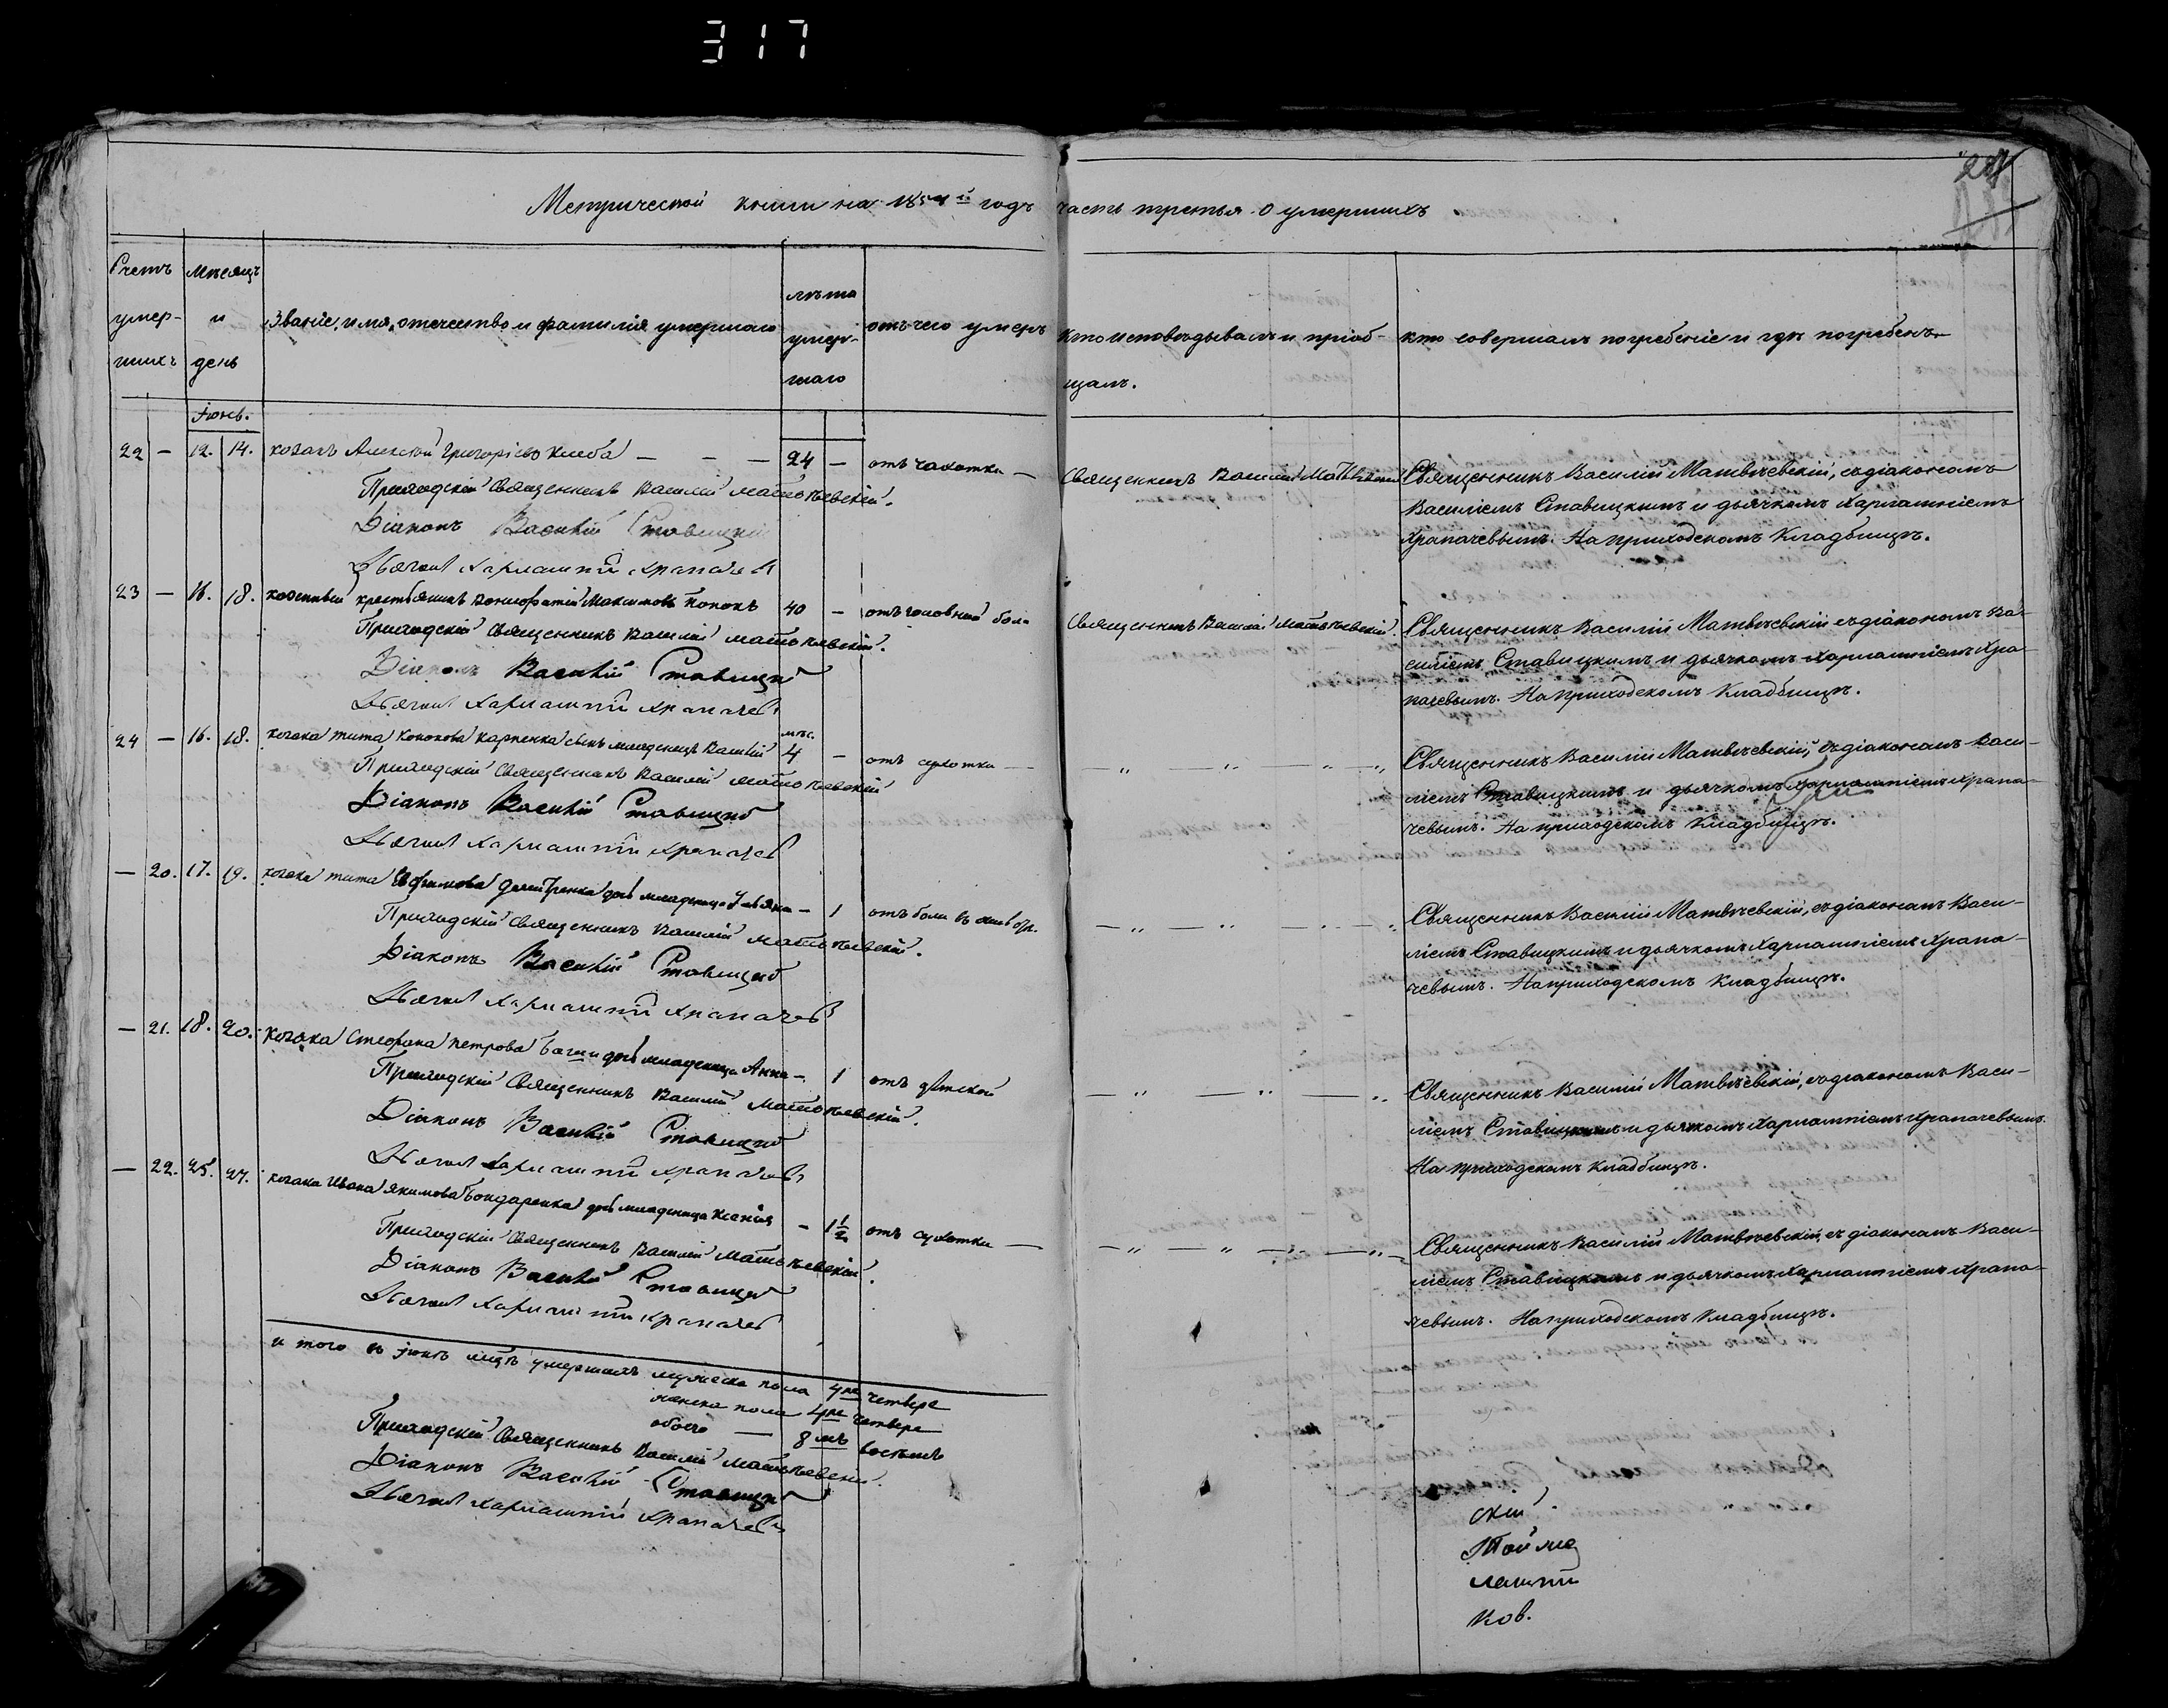 317
Метрической книги на 1854й годъ часть третья о умершихъ
Счетъ умер- шихъ
мѣсяцъ и день
Званіе, имя, отечество и фамилія умершаго
лѣта умер- шаго
отъ чего умеръ
кто исповѣдывалъ и пріоб- щалъ.
кто совершалъ погребеніе и гдѣ погребенъ
Іюнь.
22 — 12. 14. козакъ Алексѣй Григоріевъ — — — 24 — отъ чахотки —
Приходскій Священникъ Василій Матвѣевскій.
Діаконъ Василій Ставицкій
Дьячокъ Харлампій Храпачевъ
Священникъ Василій Матвѣевскій
Священникъ Василій Матвѣевскій, съ діакономъ
Василіемъ Ставицкимъ и дьячкомъ Харлампіемъ
Храпачевымъ. На приходскомъ Кладбищѣ.
23 — 16. 18. крестьянинъ Вонифатій Максимовъ 40 — отъ головной боли
Приходскій Священникъ Василій Матвѣевскій.
Діаконъ Василій Ставицкій
Дьячокъ Харлампій Храпачевъ
Священникъ Василій Матвѣевскій.
Священникъ Василій Матвѣевскій съ діакономъ Ва-
силіемъ Ставицкимъ и дьячкомъ Харлампіемъ Хра-
пачевымъ. На приходскомъ Кладбищѣ.
24 — 16. 18. козака Тита Кононова Карпенка сынъ младенецъ Василій мѣс. 4 — отъ сухотки —
Приходскій Священникъ Василій Матвѣевскій
Діаконъ Василій Ставицкій
Дьячокъ Харлампій Храпачевъ
„ „ — „ — „
Священникъ Василій Матвѣевскій, съ діакономъ Васи-
ліемъ Ставицкимъ и дьячкомъ Харлампіемъ Храпа-
чевымъ. На приходскомъ Кладбищѣ.
— 20. 17. 19. козака Тита Ефимова Дмитренка дочь младеница Ульяна — 1 отъ боли въ
Приходскій Священникъ Василій Матвѣевскій.
Діаконъ Василій Ставицкій
Дьячокъ Харлампій Храпачевъ
— „ — „ — „ — „
Священникъ Василій Матвѣевскій, съ діакономъ Васи-
ліемъ Ставицкимъ и дьячкомъ Харлампіемъ Храпа-
чевымъ. На приходскомъ Кладбищѣ.
— 21. 18. 20. козака Стефана Петрова дочь младеница Анна — 1 отъ дѣтской
Приходскій Священникъ Василій Матвѣевскій.
Діаконъ Василій Ставицкій
Дьячокъ Харлампій Храпачевъ
— „ — „ — „
Священникъ Василій Матвѣевскій, съ діакономъ Васи-
ліемъ Ставицкимъ и дьячкомъ Харлампіемъ Храпачевымъ.
На приходскомъ кладбищѣ.
— 22. 25. 27. козака Ивана Якимова Бондаренка дочь младеница Ксенія — 1½ отъ сухотки —
Приходскій Священникъ Василій Матвѣевскій.
Діаконъ Василій Ставицкій
Дьячокъ Харлампій Храпачевъ
— „ — „ — „ — „
Священникъ Василій Матвѣевскій, съ діакономъ Васи-
ліемъ Ставицкимъ и дьячкомъ Харлампіемъ Храпа-
чевымъ. На приходскомъ Кладбищѣ.
и того въ Іюнѣ мцѣ умершихъ мужеска пола 4ре четверо
женска пола 4ре четверо
обоего — 8мь восемь
Приходскій Священникъ Василій Матвѣевскій.
Діаконъ Василій Ставицкій
Дьячокъ Харлампій Храпачевъ
скій
лампій
ков.